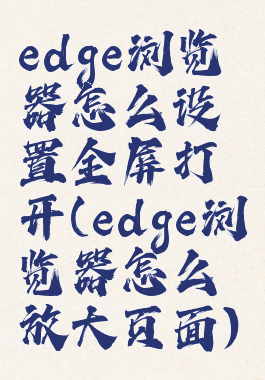 edge浏览
器怎么设
置全屏打
开(edge浏
览器怎么
放大页面)